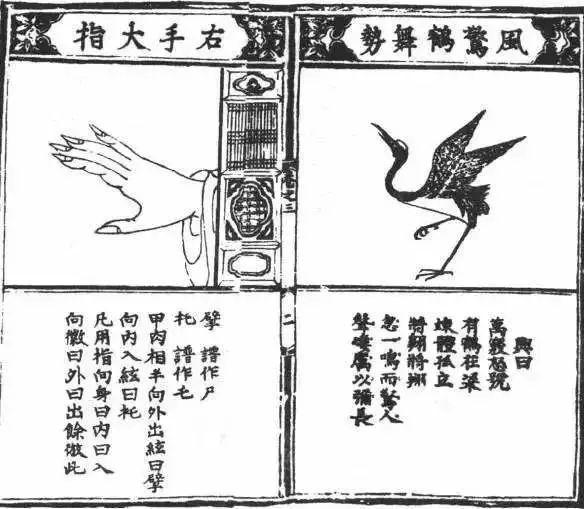 風驚鶴舞勢
興曰
萬竅怒號
有鶴在梁
竦體孤立
將翱將翔
忽一鳴而驚人
聲唳厲以彌長
之三
二
右手大指
擘 譜作尸
托 譜作乇
甲肉相半向外出絃曰擘
向內入絃曰托
凡用指向身曰內曰入
向徽曰外曰出餘倣此